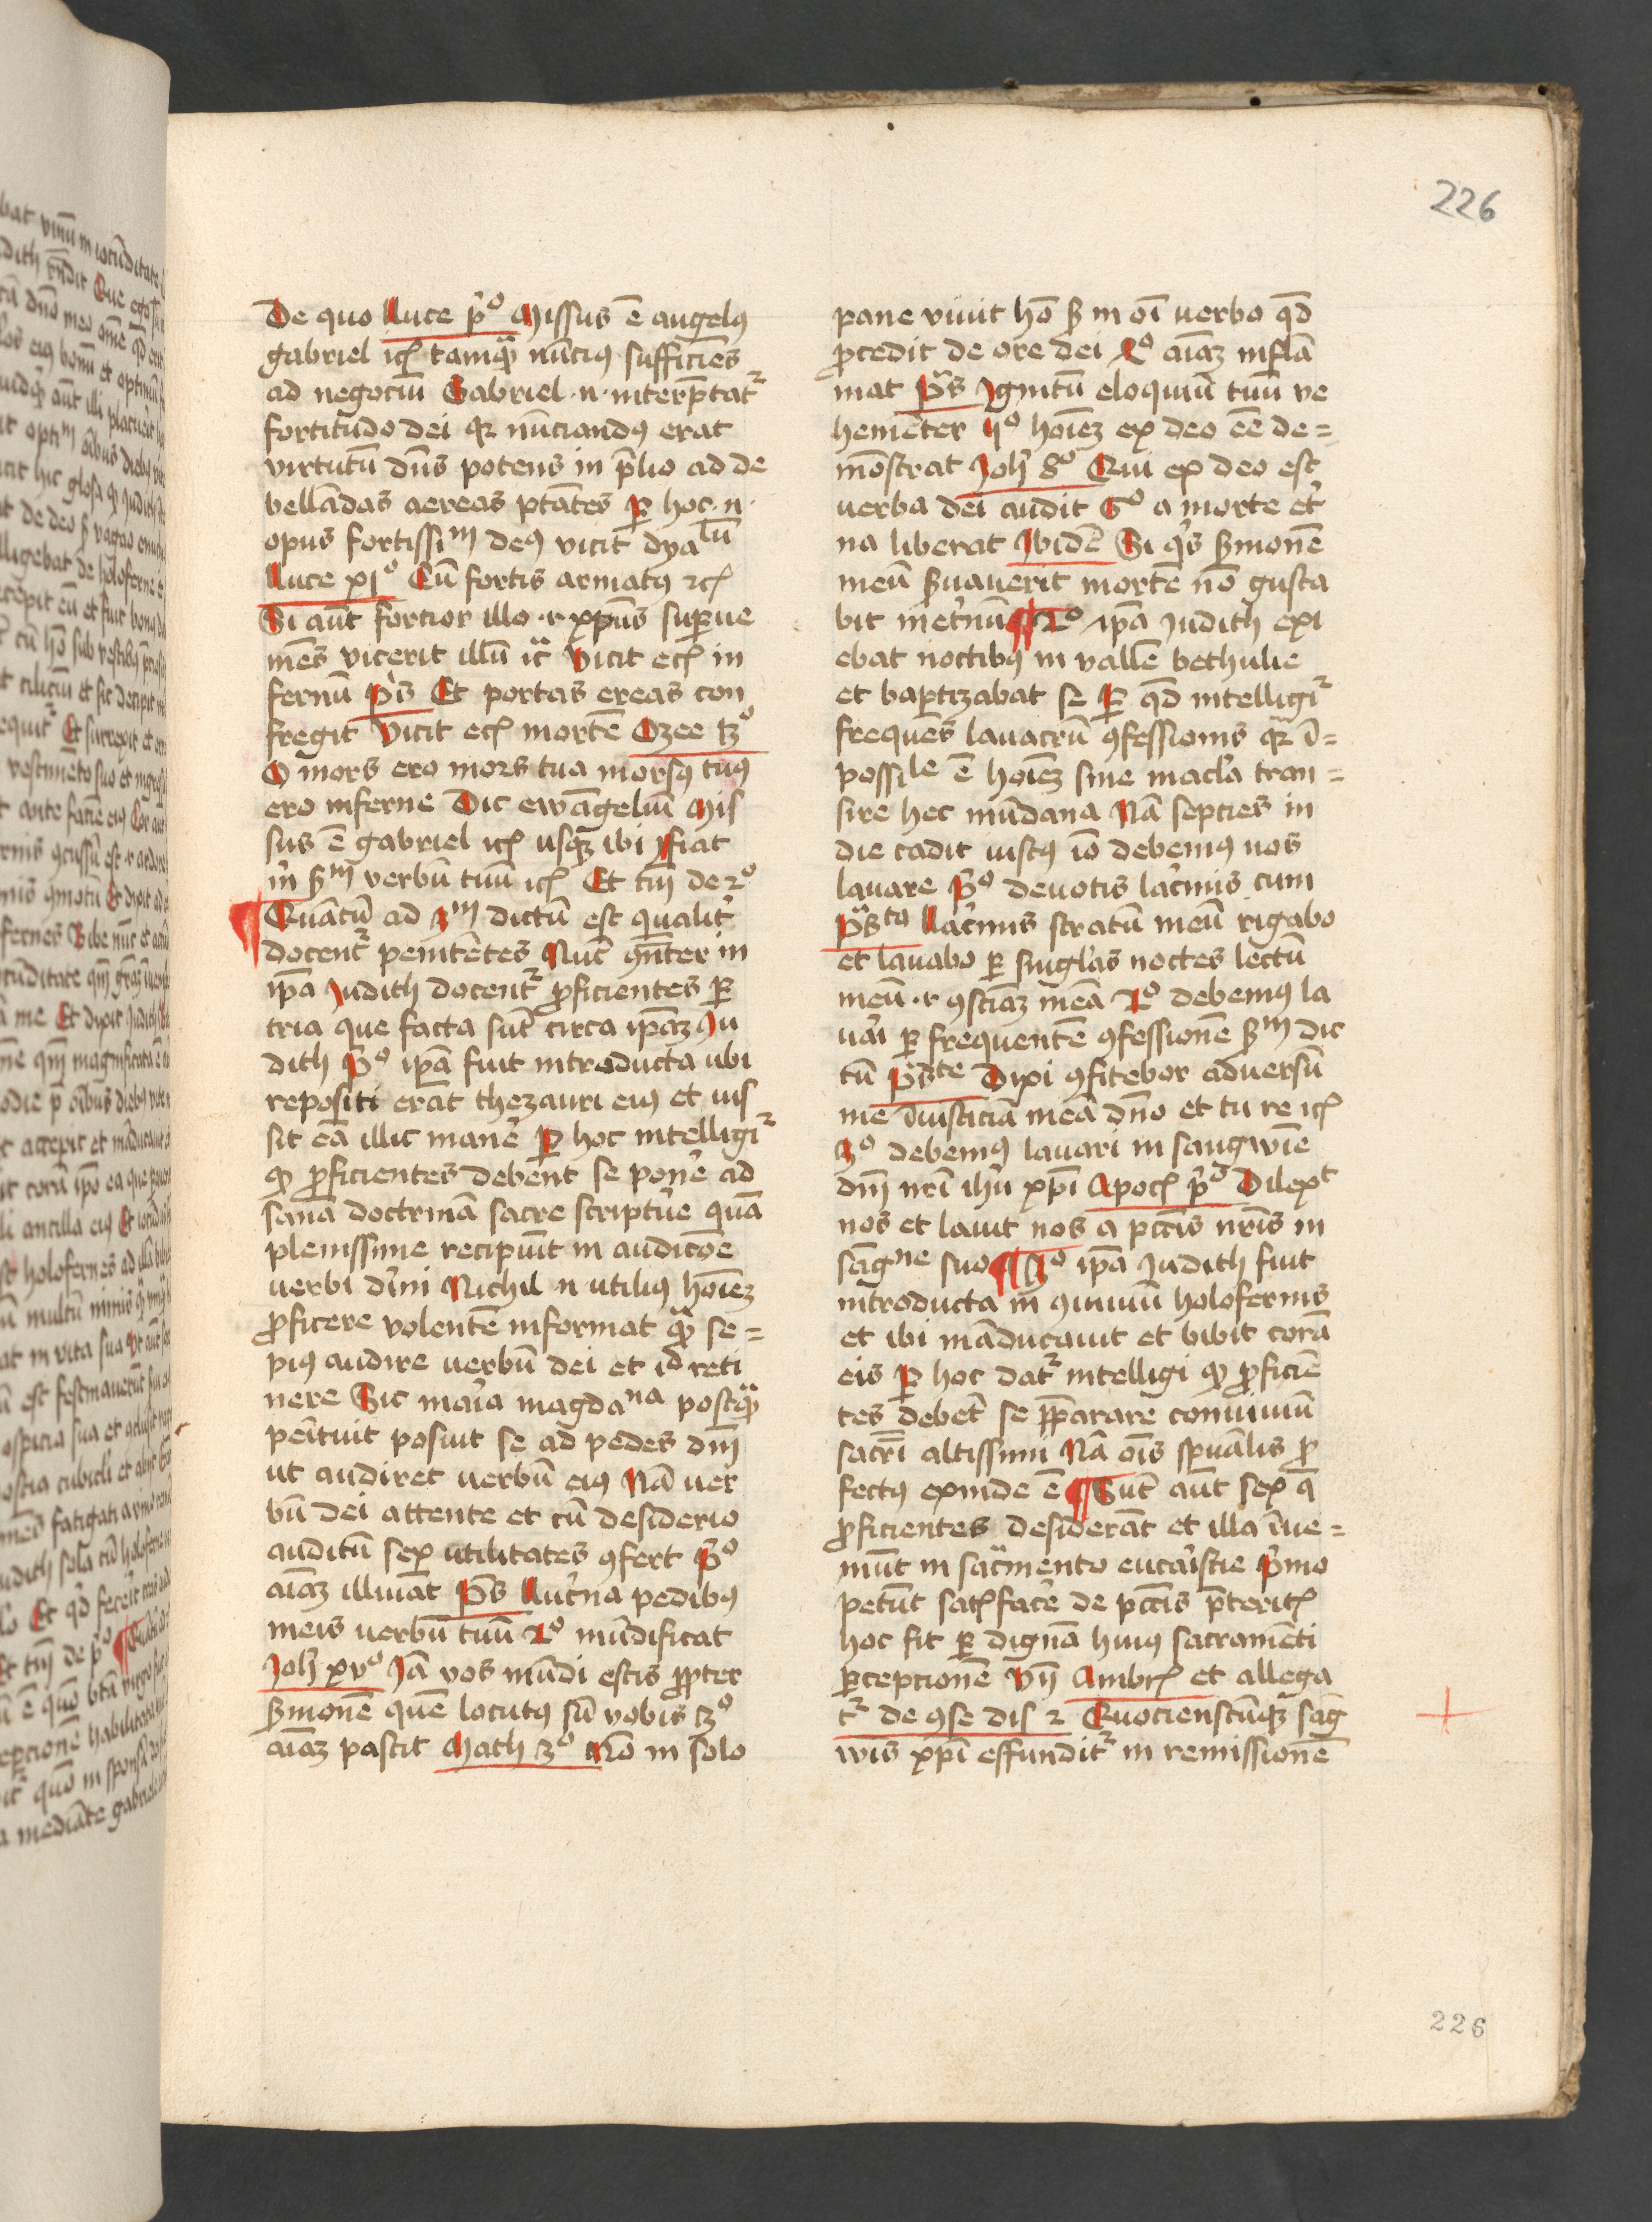 226
De quo Luce pͦ Missus ē angelꝰ
gabriel ꝛcͣ tamqͣ nūciꝰ sufficiēs
ad negociū Gabriel ·n· interp̄tatᷣ
fortitudo dei qꝛ nūciandꝰ erat
virtutū dn̄s potens in p̄lio ad de
bellādas aereas ptātes ꝑ hoc ·n·
opus fortissiᵐ deꝰ vicit dyaˡū
Luce xjͦ Cū fortis armatꝰ ꝛcͣ
Si aūt fortior illo ·r· xpūs suꝑue
niēs vicerit illū ꝛc̄ Vicit ecͣ in
fernū p̄s Et portas ereas con
fregit Vicit ecͣ mortē Ozee 13ͦ
O mors ero mors tua morsꝰ tuꝰ
ero inferne Dic ewāgeliū Mis
sus ē gabriel ꝛcͣ usqꝫ ibi fiat
m̄ sᵐ verbū tuū ꝛcͣ Et tm̄ de 2ͦ
Quātū ad 3ᵐ dictū est qualit̄
docentᷣ penitētes Nūc ꝯn̄ter in
ip̄a Judith docentᷣ ꝓficientes ꝑ
tria que facta sūt circa ip̄aꝫ Ju
dith Pͦ ip̄a fuit introducta ubi
repositi erāt thezauri eiꝰ et iuſ
sit eā illic man̄e ꝑ hoc intelligiᷣ
ꝙ ꝓficientes debēt se pon̄e ad
sanā doctrinā sacre script̄ue quā
plenissime recipiūt in audicōe
verbi dīni Nichil n̄ utiliꝰ hoīeꝫ
ꝓficere volentē informat qͣ se=
piꝰ audire verbū dei et id reti
nere Sic maīa magdaⁿᵃ postqͣ
penītuit posuit se ad pedes dnī
ut audiret verbū eiꝰ Nā ver
bū dei attente et cū desiderio
auditū sex utilitates ꝯfert Pͦ
aīaꝫ illuīat p̄s Luc̄na pedibꝰ
meis verbū tuū 2ͦ mūdificat
Joh̄ xvͦ Jā vos mūdi estis ꝓpter
s̄monē quē locutꝰ sū vobis 3ͦ
aīaꝫ pascit Math 4ͦ Nō in solo
pane viuit hō sꝫ in oī verbo qd̄
ꝓcedit de ore dei 4ͦ aīaꝫ inflā
mat p̄s Ignitū eloquiū tuū ve
hemēter 5ͦ hoīeꝫ ex deo eē de=
mōstrat Joh̄ 8ͦ Qui ex deo est
verba dei audit 6ͦ a morte et̄
na liberat Ibidē Si qͥs s̄monē
meū s̄uauerit mortē nō gusta
bit inet̄nū 2ͦ ip̄a Judith exi
ebat noctibꝰ in vallē bethulie
et baptizabat se ꝑ qd̄ intelligiᷣ
frequēs lauacrū ꝯfessionis qꝛ ī=
possiˡᵉ ē hoīeꝫ sine macl̄a tran=
sire hec mūdana Nā septies in
die cadit iustꝰ iō debemꝰ nos
lauare pͦ deuotis lac̄mis cum
p̄sᵗᵃ Lac̄mis stratū meū rigabo
et lauabo ꝑ singl̄as noctes lectū
meū ·r· ꝯsciāꝫ meā 2ͦ debemꝰ la
uāi ꝑ frequentē ꝯfessionē sᵐ dic
tū p̄sᵗᵉ Dixi ꝯfitebor aduersū
me īiusticiā meā dn̄o et tu re ꝛcͣ
3ͦ debemꝰ lauari in sangwīe
dnī nrī ihū xpī Apocͣ pͦ Dilexᵗ
nos et lauit nos a pcc̄is nr̄is in
sāgⁿᵉ suo 3ͦ ip̄a Judith fuit
introducta in ꝯuiuiū holofernis
et ibi māducauit et bibit corā
eis ꝑ hoc datᷣ intelligi ꝙ ꝓficiē
tes debēt se p̄ꝑarare conuiuiū
sacrī altissimi Nā oīs sp̄uālis ꝓ
fectꝰ exinde ē Sūt aūt sex q̄
ꝓficientes desiderāt et illa īue=
niūt in sacͣmento eucāistie p̄mo
petūt satͣfac̄e de pcc̄is p̄teritͣ
hoc fit ꝑ dignā huiꝰ sacramēti
ꝑcepcionē Vn̄ Ambrͣ et allega
tᷣ de ꝯse dis 2 Quocienscūqꝫ sāg
wis xpī effunditᷣ in remissionē
226